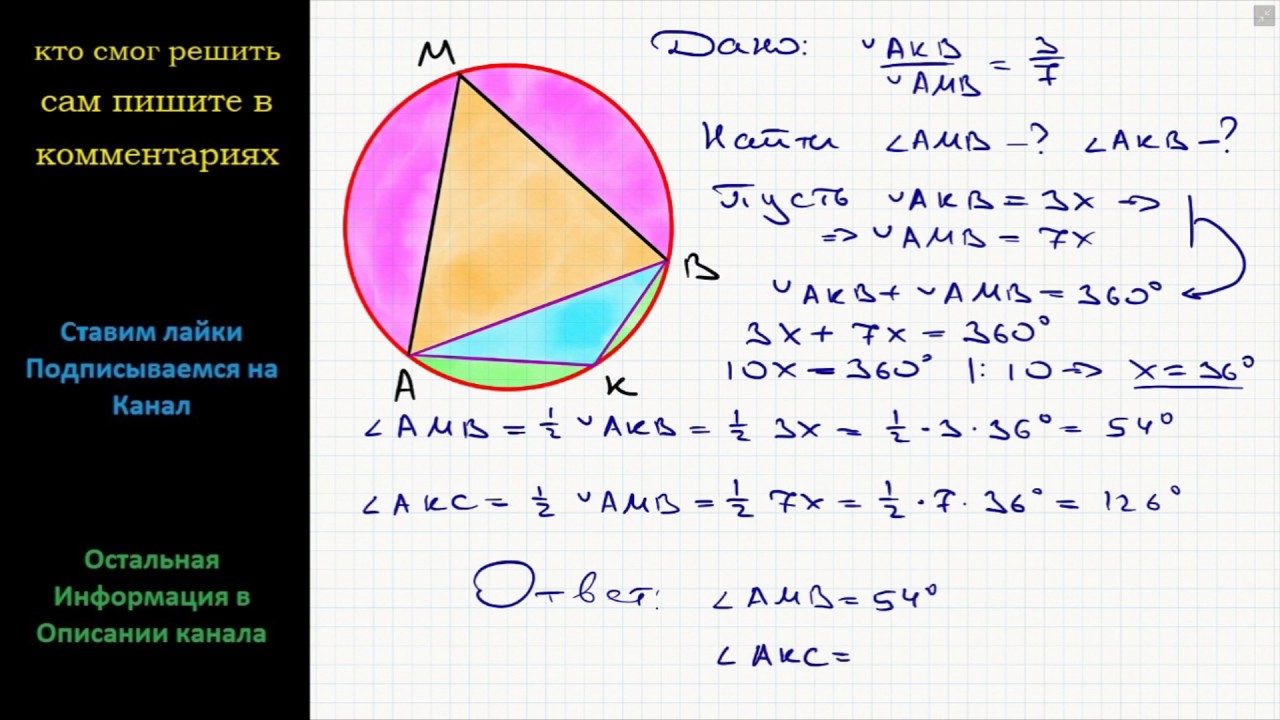 кто смог решить
сам пишите в
комментариях
Ставим лайки
Подписываемся на
Канал
Остальная
Информация в
Описании канала
M
B
A
K
Дано: ◡AKB / ◡AMB = 3/7
Найти ∠AMB –? ∠AKB –?
Пусть ◡AKB = 3x →
⇒ ◡AMB = 7x
◡AKB + ◡AMB = 360°
3x + 7x = 360°
10x = 360° |: 10 → x = 36°
∠AMB = 1/2 ◡AKB = 1/2 3x = 1/2 · 3 · 36° = 54°
∠AKC = 1/2 ◡AMB = 1/2 7x = 1/2 · 7 · 36° = 126°
Ответ: ∠AMB = 54°
∠AKC =